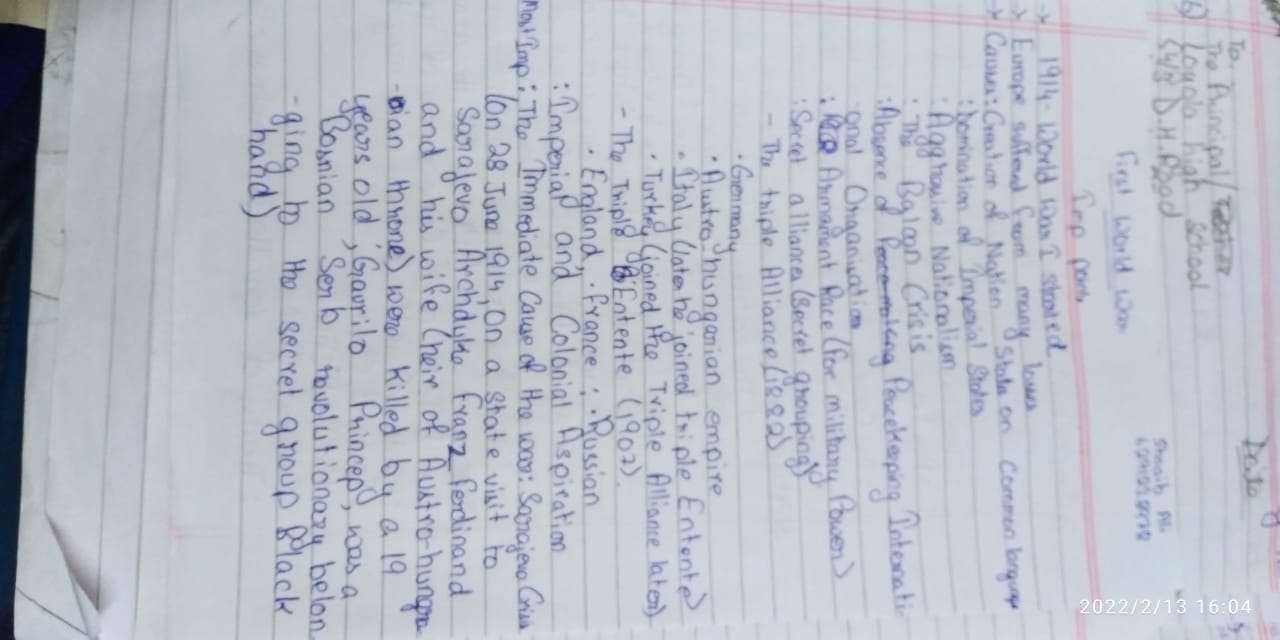 To,
The Principal/
6) Loggia high school
D.H. Road
First World War
Imp points
→ 1914- World War I started
→ Europe suffered from many losses
→ Causes: Creation of Nation State on common language
: Domination of Imperial States
: Agghesive Nationalism
: The Balcan Crisis
: Absence of Peacekeeping Internati-
onal Organisation
: Armament Race (for military Power)
: Secret alliances (Secret grouping)
- The triple Alliance (1882)
• Germany
• Austro hungarian empire
• Italy (later he joined triple Entente)
• Turkey (joined the Triple Alliance later)
- The Triple Entente (1907).
• England, • France ; • Russian
: Imperial and Colonial Aspiration
Most Imp: The Immediate cause of the war: Sarajevo Crisis
(On 28 June 1914, On a state visit to
Sarajevo Archdyke Franz Ferdinand
and his wife (heir of Austro-hungra
-ian throne) were killed by a 19
years old, Gavrilo Princep, was a
Bosnian Serb revolutionary belon
-ging to the secret group Black
hand)
2022/2/13 16:04